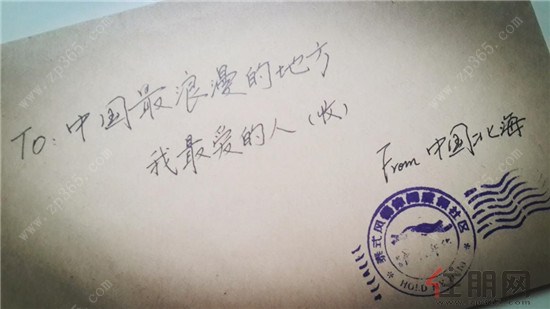 To: 中国最浪漫的地方
我最爱的人(收)
From 中国北海
www.zp365.com
住朋网